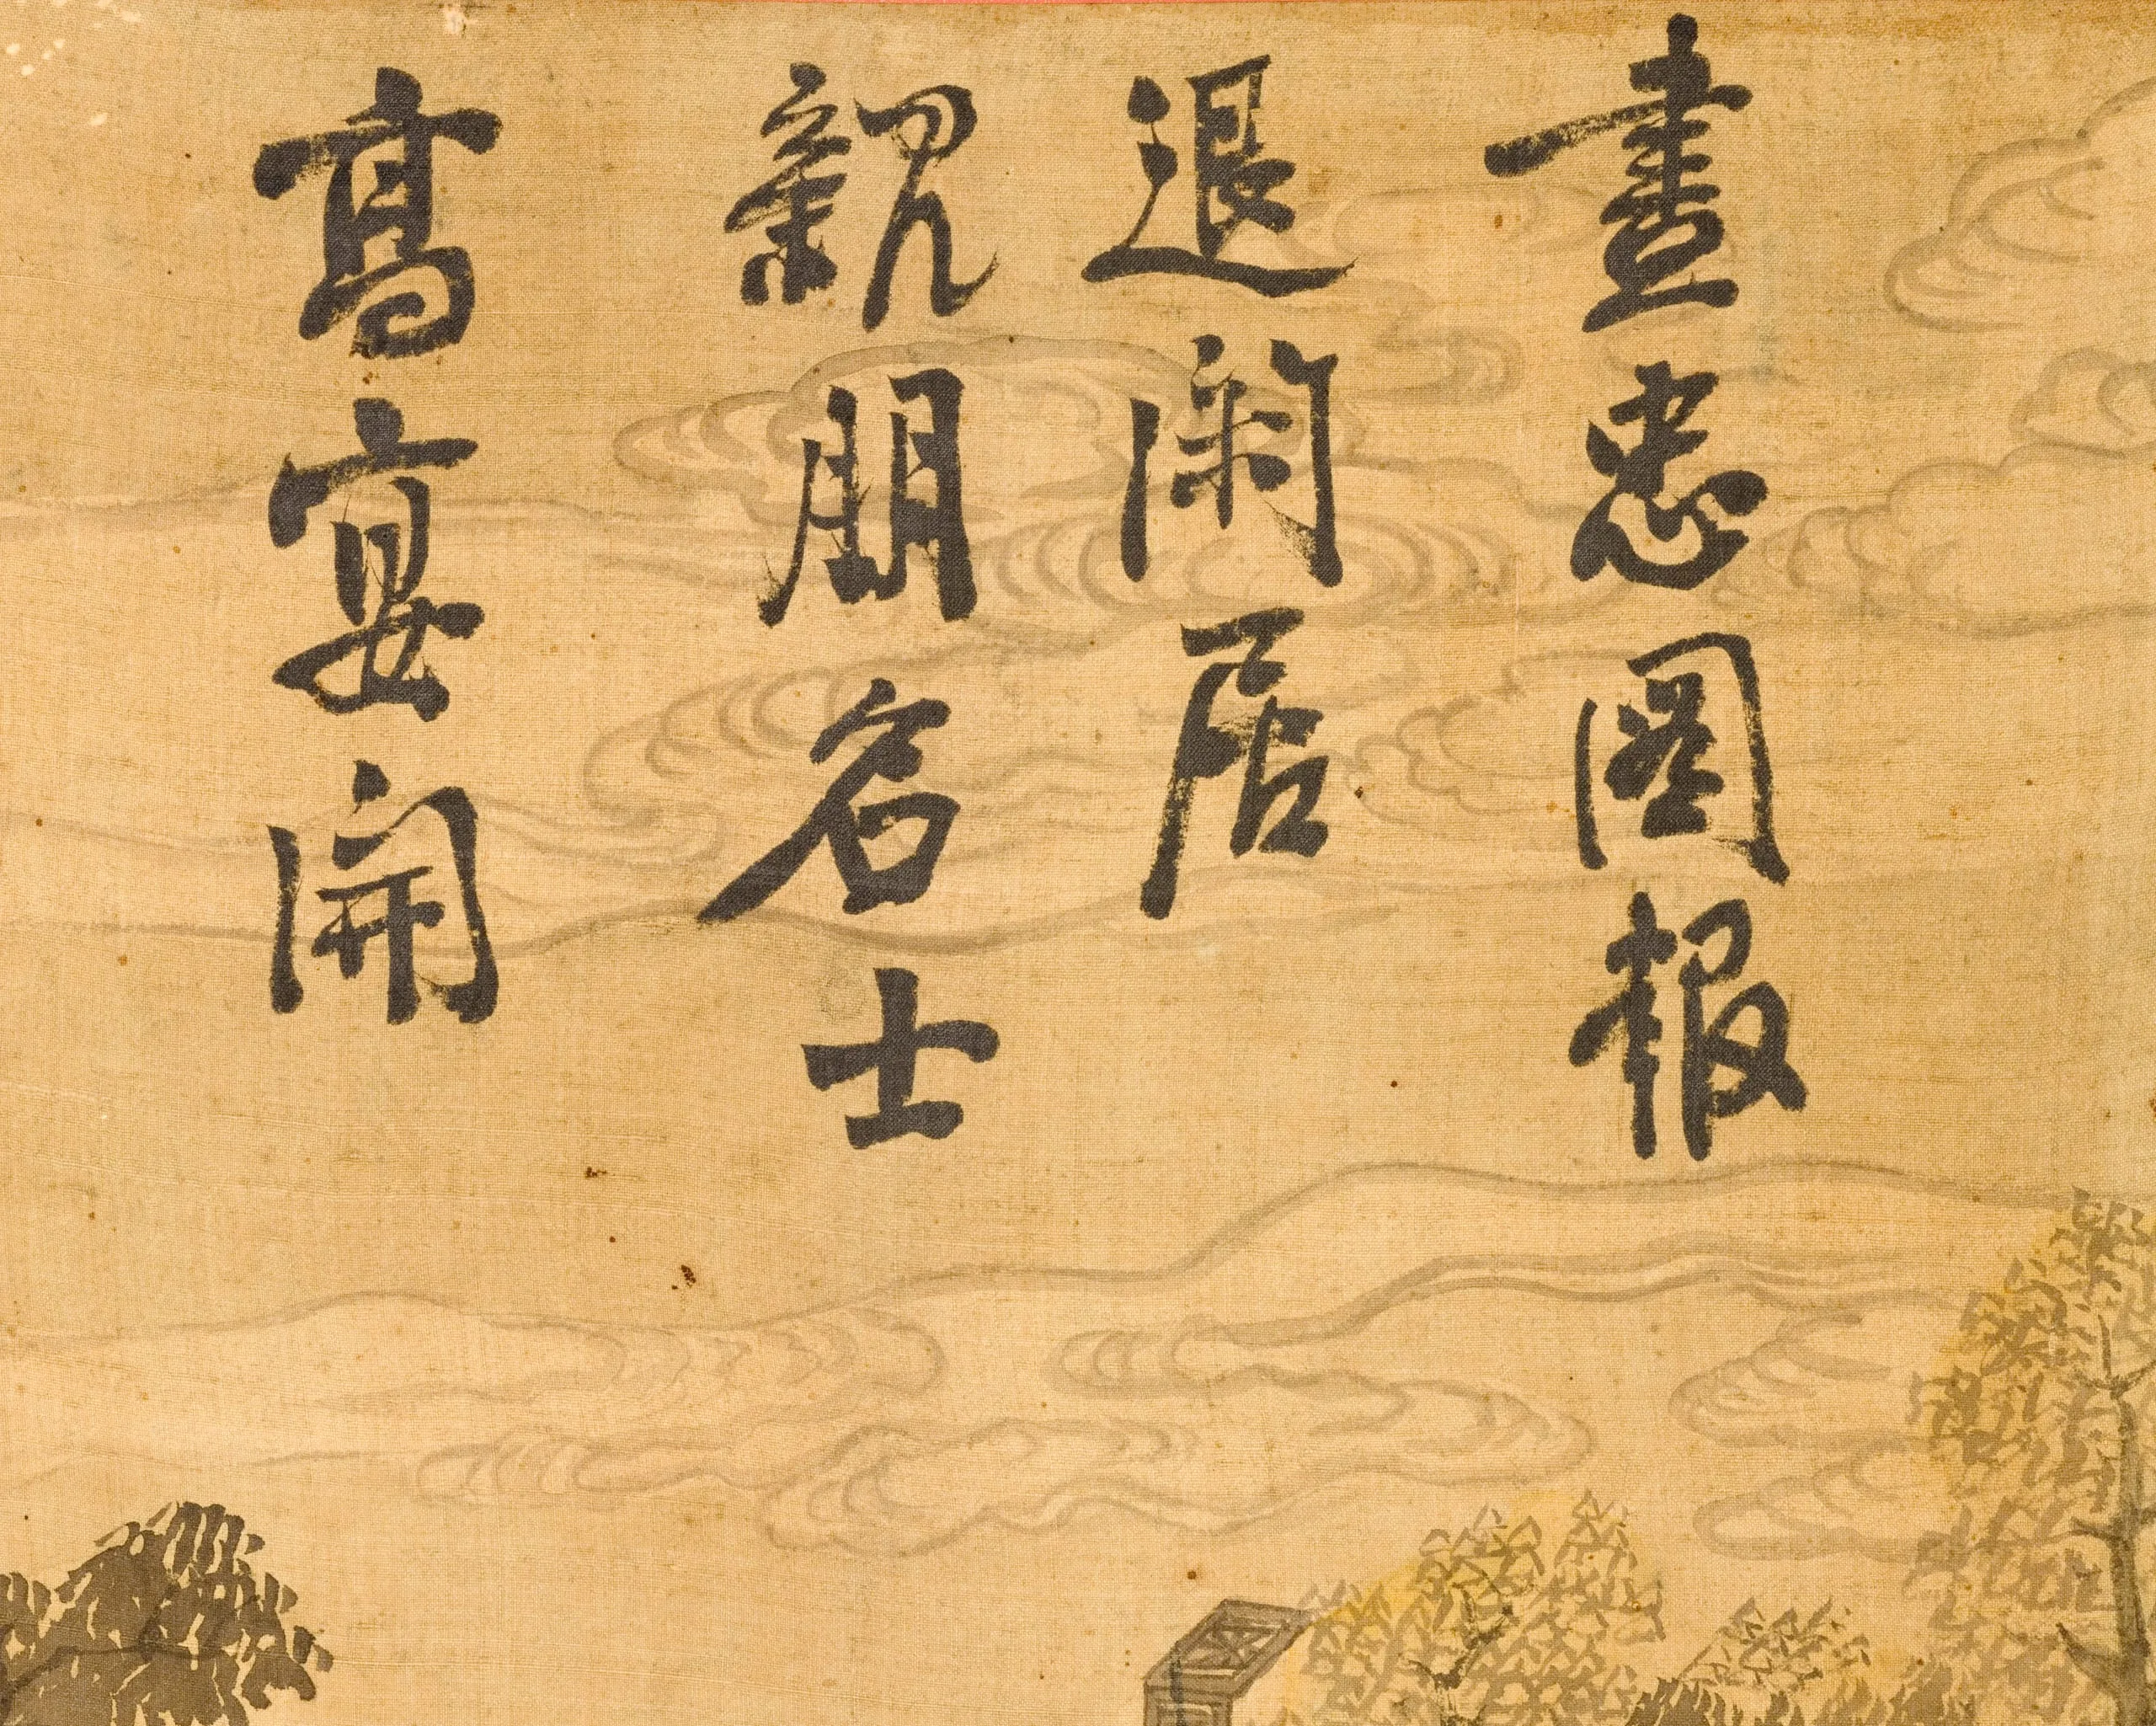 盡忠圖報
退閑居
親朋名士
髙宴開